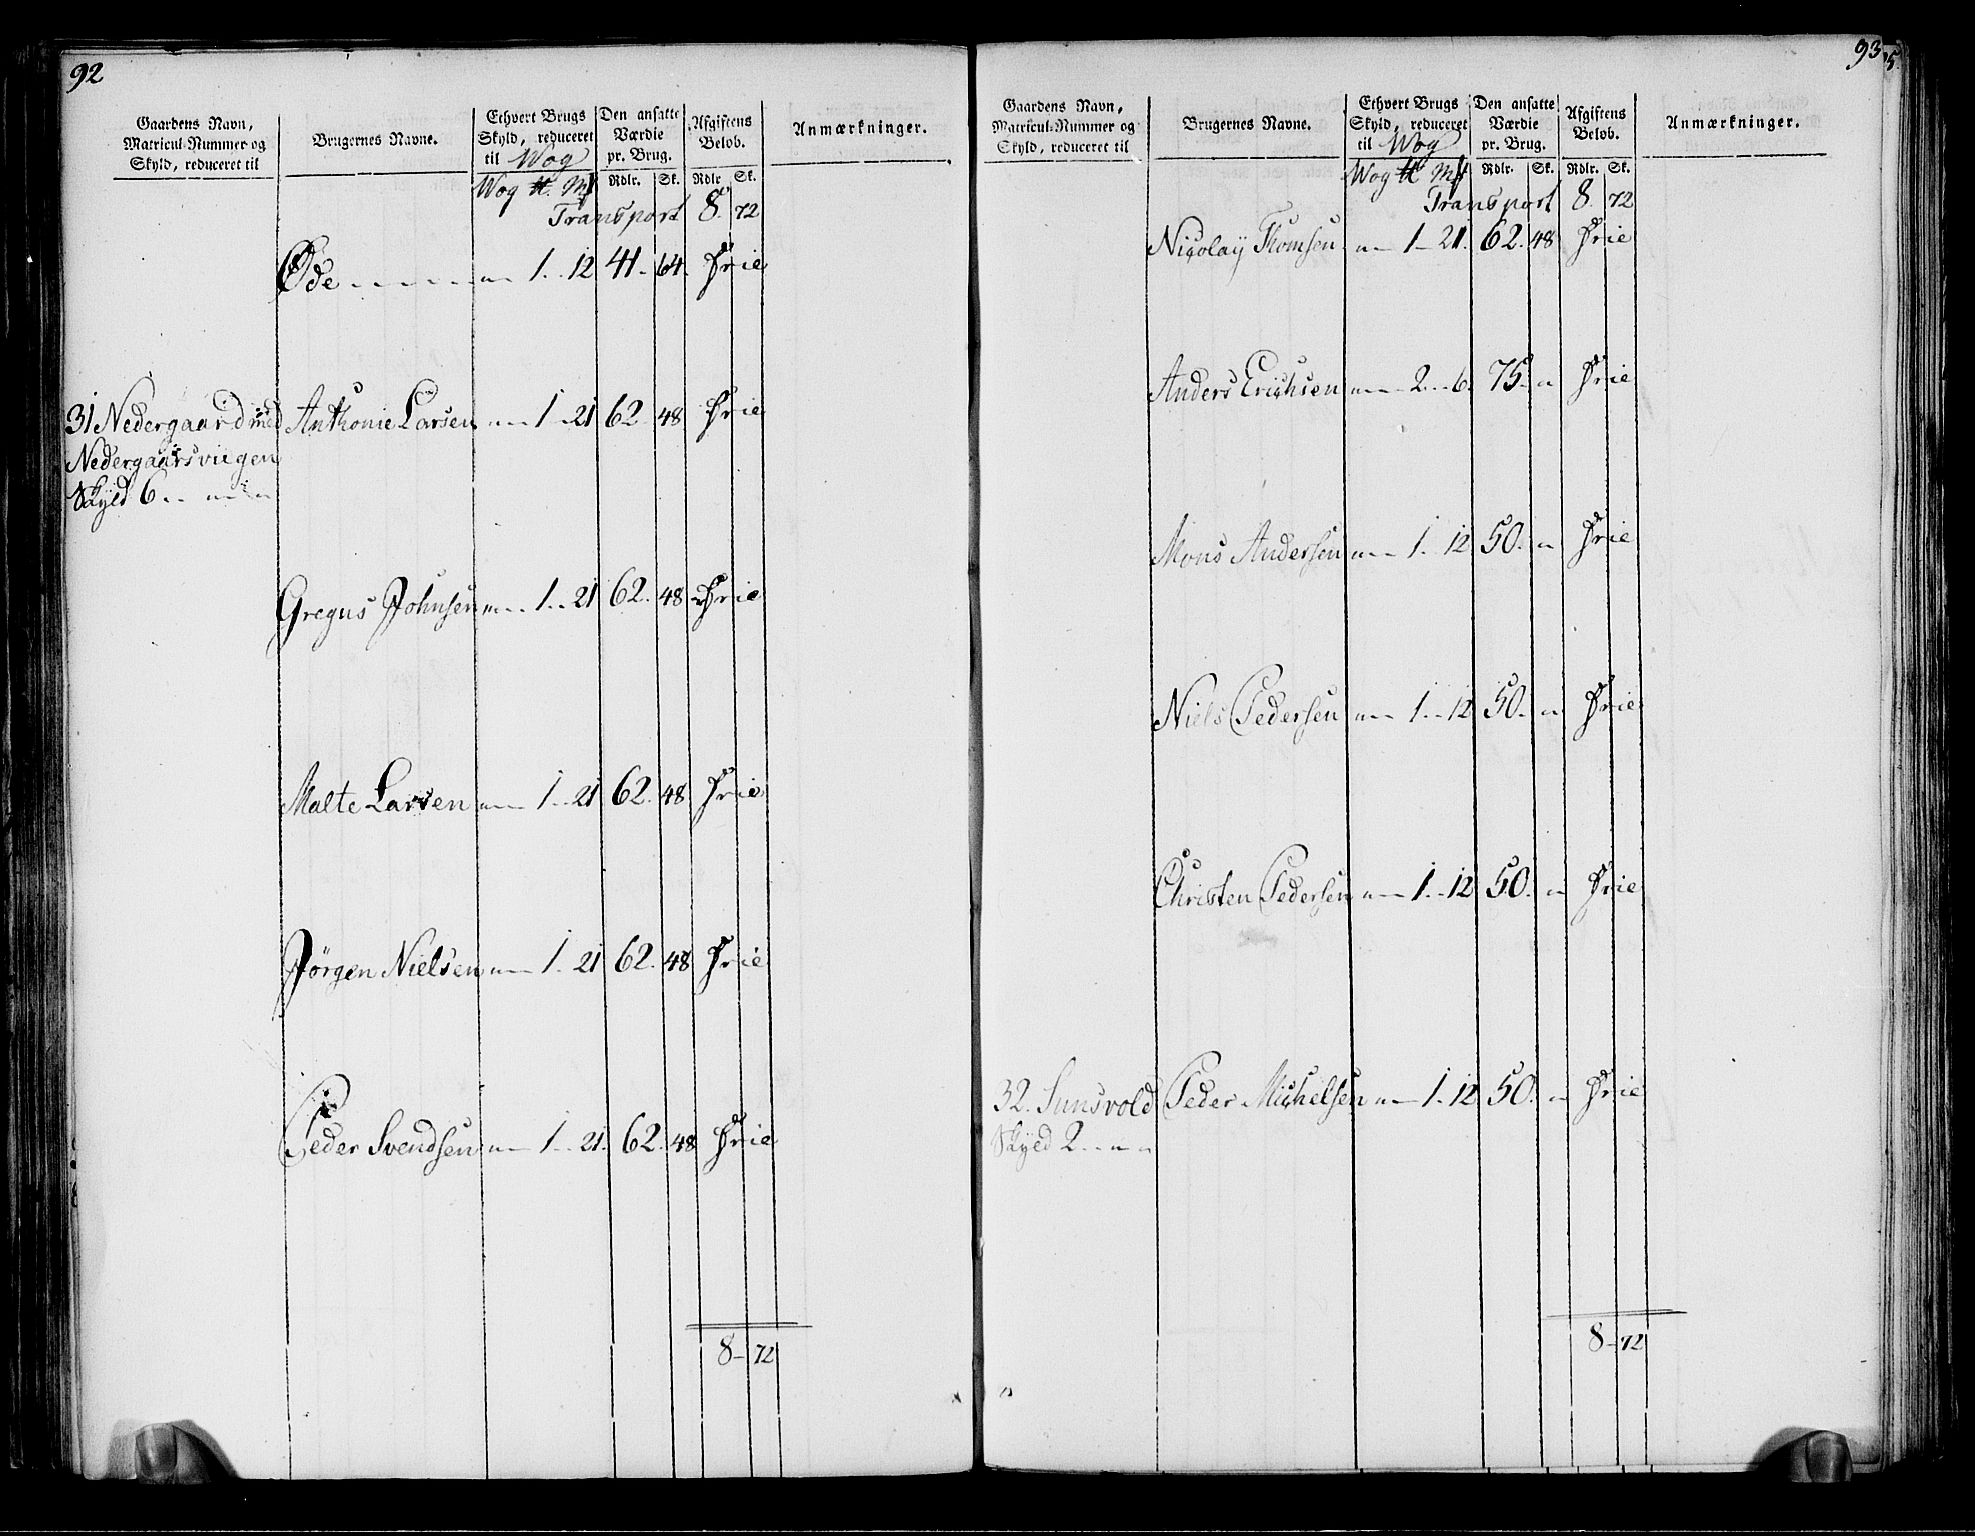 92
Gaardens Navn, Matricul-Nummer og Skyld, reduceret til
Brugernes Navne.
Ethvert Brugs Skyld, reduceret til Wog
Den ansatte Værdie pr. Brug.
Afgiftens Beløb.
Anmærkninger.
Wog ℔. Mk Rdlr. Sk. Rdlr Sk.
Transport 8. 72
Øde 1 .. 12 41 64 Frie
31 Nedergaard med Anthonie Larsen 1 .. 21 62 48 Frie
Nedergaarsviegen
Skyld 6
Gregus Johnsen 1 .. 21 62. 48 Frie
Malte Larsen 1 .. 21 62. 48 Frie
Jörgen Nielsen 1 .. 21 62. 48 Frie
Peder Svendsen 1 .. 21. 62. 48 Frie
8 - 72
93
5.
Gaardens Navn, Matricul-Nummer og Skyld, reduceret til
Brugernes Navne.
Ethvert Brugs Skyld, reduceret til Wog
Den ansatte Værdie pr. Brug.
Afgiftens Beløb.
Anmærkninger.
Wog ℔ Mk Rdlr. Sk. Rdlr. Sk.
Transport 8. 72
Nicolaÿ Thomsen 1 - 21. 62. 48 Frie
Anders Erichsen 2 .. 6. 75. " Frie
Mons Andersen 1 .. 12 50. " Frie
Niels Pedersen 1 .. 12 50. " Frie
Christen Pedersen 1 .. 12 50. " Frie
32. Sunsvold Peder Michelsen 1 . 12 50. " Frie
Skyld 2 .. " "
8 - 72